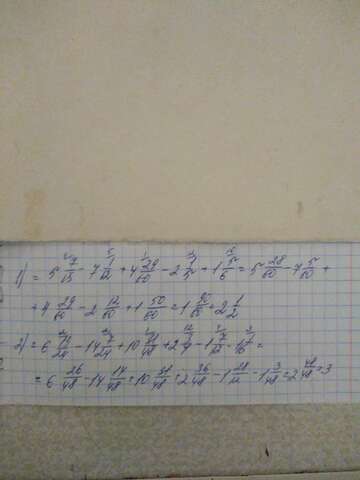 1) = 5 7/15 - 7 1/12 + 4 29/60 - 2 1/5 + 1 5/6 = 5 28/60 - 7 5/60 +
+ 4 29/60 - 2 12/60 + 1 50/60 = 1 90/60 = 2 1/2
2) = 6 13/24 - 14 7/24 + 10 31/48 + 2 3/4 - 1 7/12 - 1 1/16 =
= 6 26/48 - 14 14/48 + 10 31/48 + 2 36/48 - 1 28/48 - 1 3/48 = 2 48/48 = 3